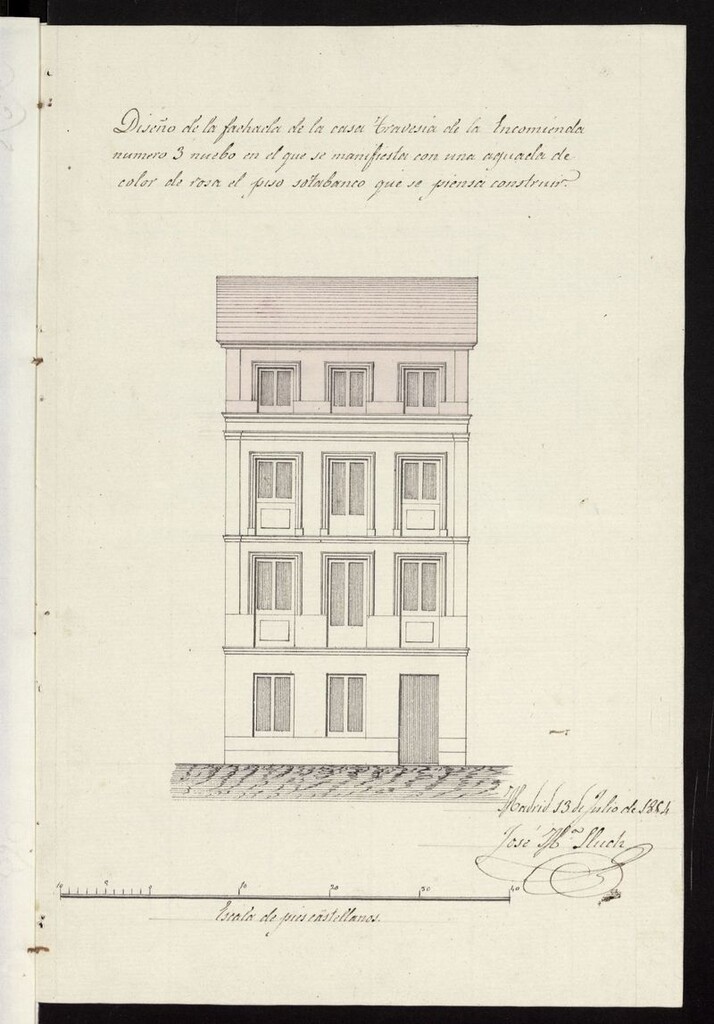 Diseño de la fachada de la casa travesia de la Encomienda
numero 3 nuebo en el que se manifiesta con una aguada de
color de rosa el piso sotabanco que se piensa construir.
Madrid 13 de Julio de 1854
José M.ª Lluch
10 0 10 20 30 40
Escala de pies castellanos.